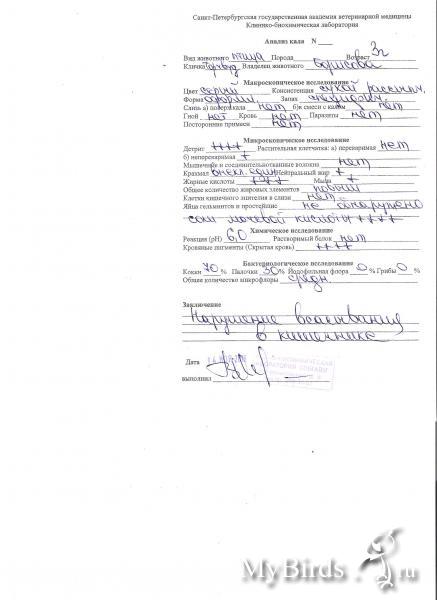 Санкт-Петербургская государственная академия ветеринарной медицины
Клинико-биохимическая лаборатория
Анализ кала N
Вид животного птица Порода Возраст 3г
Кличка Владелец животного Борисова
Макроскопическое исследование
Цвет серый Консистенция сухой рассыпч.
Форма оформл. Запах специфич.
Слизь а) поверх кала нет б)в смеси с калом нет
Гной нет Кровь нет Паразиты нет
Посторонние примеси нет
Микроскопическое исследование
Детрит ++++ Растительная клетчатка: а) переваримая нет
б) непереваримая +
Мышечные и соединительнотканные волокна нет
Крахмал внекл. един Нейтральный жир +
Жирные кислоты +++ Мыла +
Общее количество жировых элементов повыш
Клетки кишечного эпителия в слизи нет
Яйца гельминтов и простейшие не обнаружено
соли мочевой кислоты ++++
Химическое исследование
Реакция (pH) 6,0 Растворимый белок нет
Кровяные пигменты (Скрытая кровь) ++++
Бактериологическое исследование
Кокки 70 % Палочки 30 % Йодофильная флора 0 % Грибы 0 %
Общее количество микрофлоры средн.
Заключение
Нарушение всасывания
в кишечнике
Дата
выполнил
MyBirds.ru